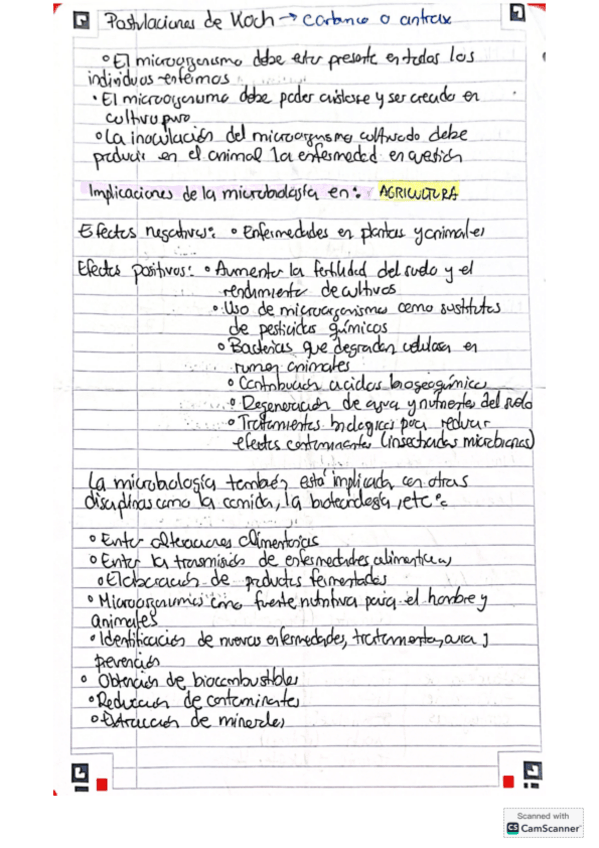 Postulaciones de Koch → carbunco o antrax
° El microorganismo debe estar presente en todos los
individuos enfermos
• El microorganismo debe poder aislarse y ser creado en
cultivo puro
° La inoculación del microorganismo cultivado debe
producir en el animal la enfermedad en cuestión
Implicaciones de la microbiología en: AGRICULTURA
Efectos negativos: ° Enfermedades en plantas y animales
Efectos positivos: ° Aumentar la fertilidad del suelo y el
rendimiento de cultivos
° Uso de microorganismos como sustitutos
de pesticidas químicos
° Bacterias que degradan celulosa en
rumen animales
° Contribución a ciclos biogeoquímicos
° Degeneración de agua y nutrientes del suelo
° Tratamientos biológicos para reducir
efectos contaminantes (insecticidas microbianos)
La microbiología también está implicada con otras
disciplinas como la comida, la biotecnología, etc:
° Evitar alteraciones alimentarias
° Evitar la transmisión de enfermedades alimenticias
° Elaboración de productos fermentados
° Microorganismos como fuente nutritiva para el hombre y
animales
° Identificación de nuevas enfermedades, tratamiento, cura y
prevención
° Obtención de biocombustibles
° Reducción de contaminantes
° Extracción de minerales
Scanned with
CS CamScanner